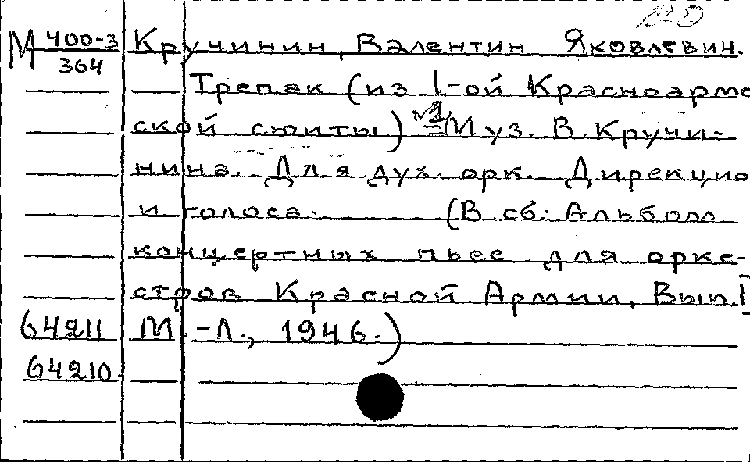 М 400-3 Кручинин, Валентин Яковлевич.
364
Трепак (из 1-ой Красноарме
ской сюиты) Муз. В. Кручи-
нина. Для дух. орк. Дирекцио
и голоса. (В сб: Альбом
концертных пьес для орке-
стров Красной Армии, Вып. I
64211 М.-Л., 1946.)
64210